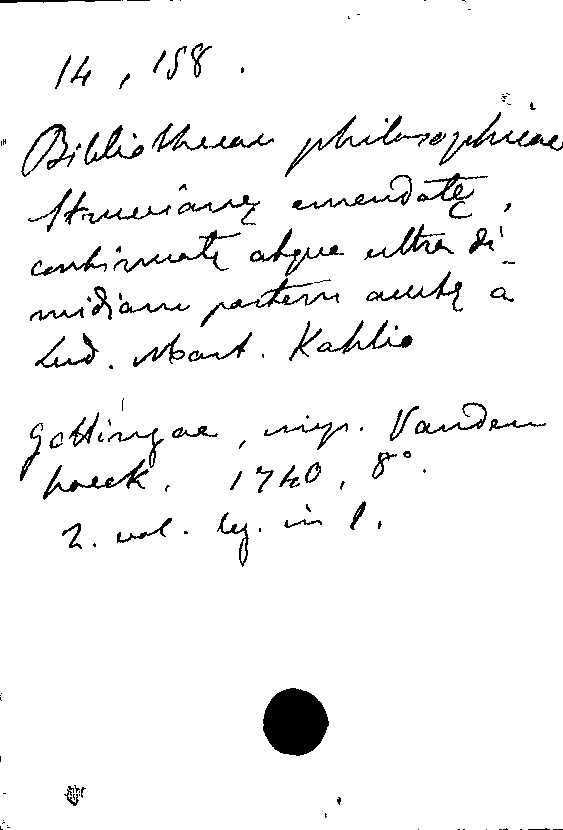 14, 158.
Bibliothecae philosophicae
Struvianę emendatę,
continuatę atque ultra di-
midiam partem auctę a
Lud. Mart. Kahlio
Gottingae, imp. Vanden
hoeck. 1740, 8°.
2. vol. lig. in 1.